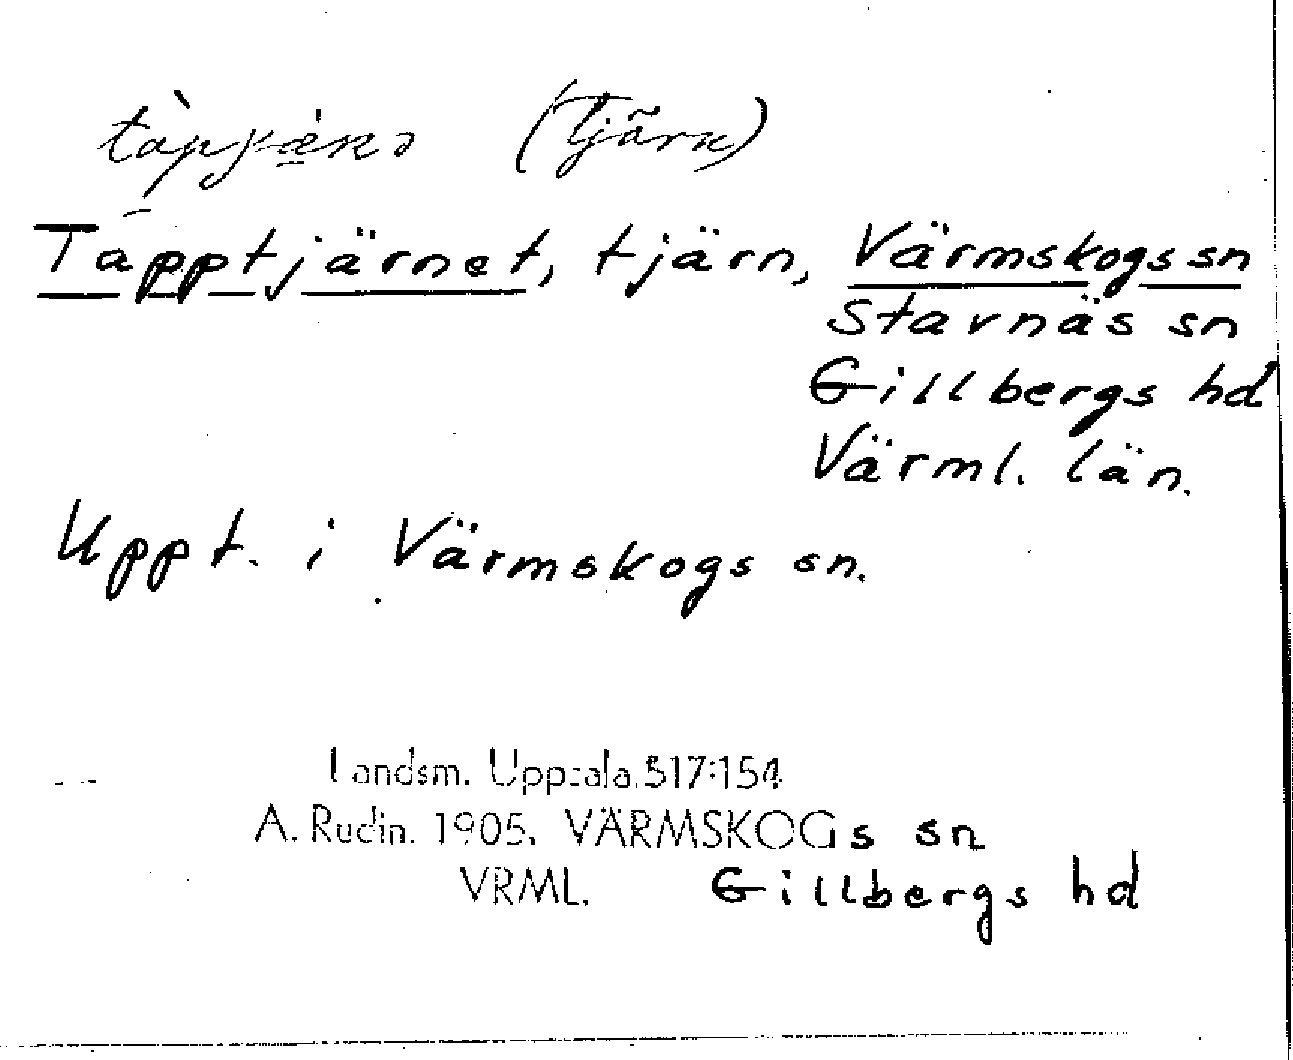 (Tjärn)
Tapptjärnet, tjärn, Värmskogs sn
Stavnäs sn
Gillbergs hd
Värml. län.
Uppt. i Värmskogs sn.
Landsm. Uppsala 517:154
A. Rudin. 1905. VÄRMSKOGs sn
VRML. Gillbergs hd